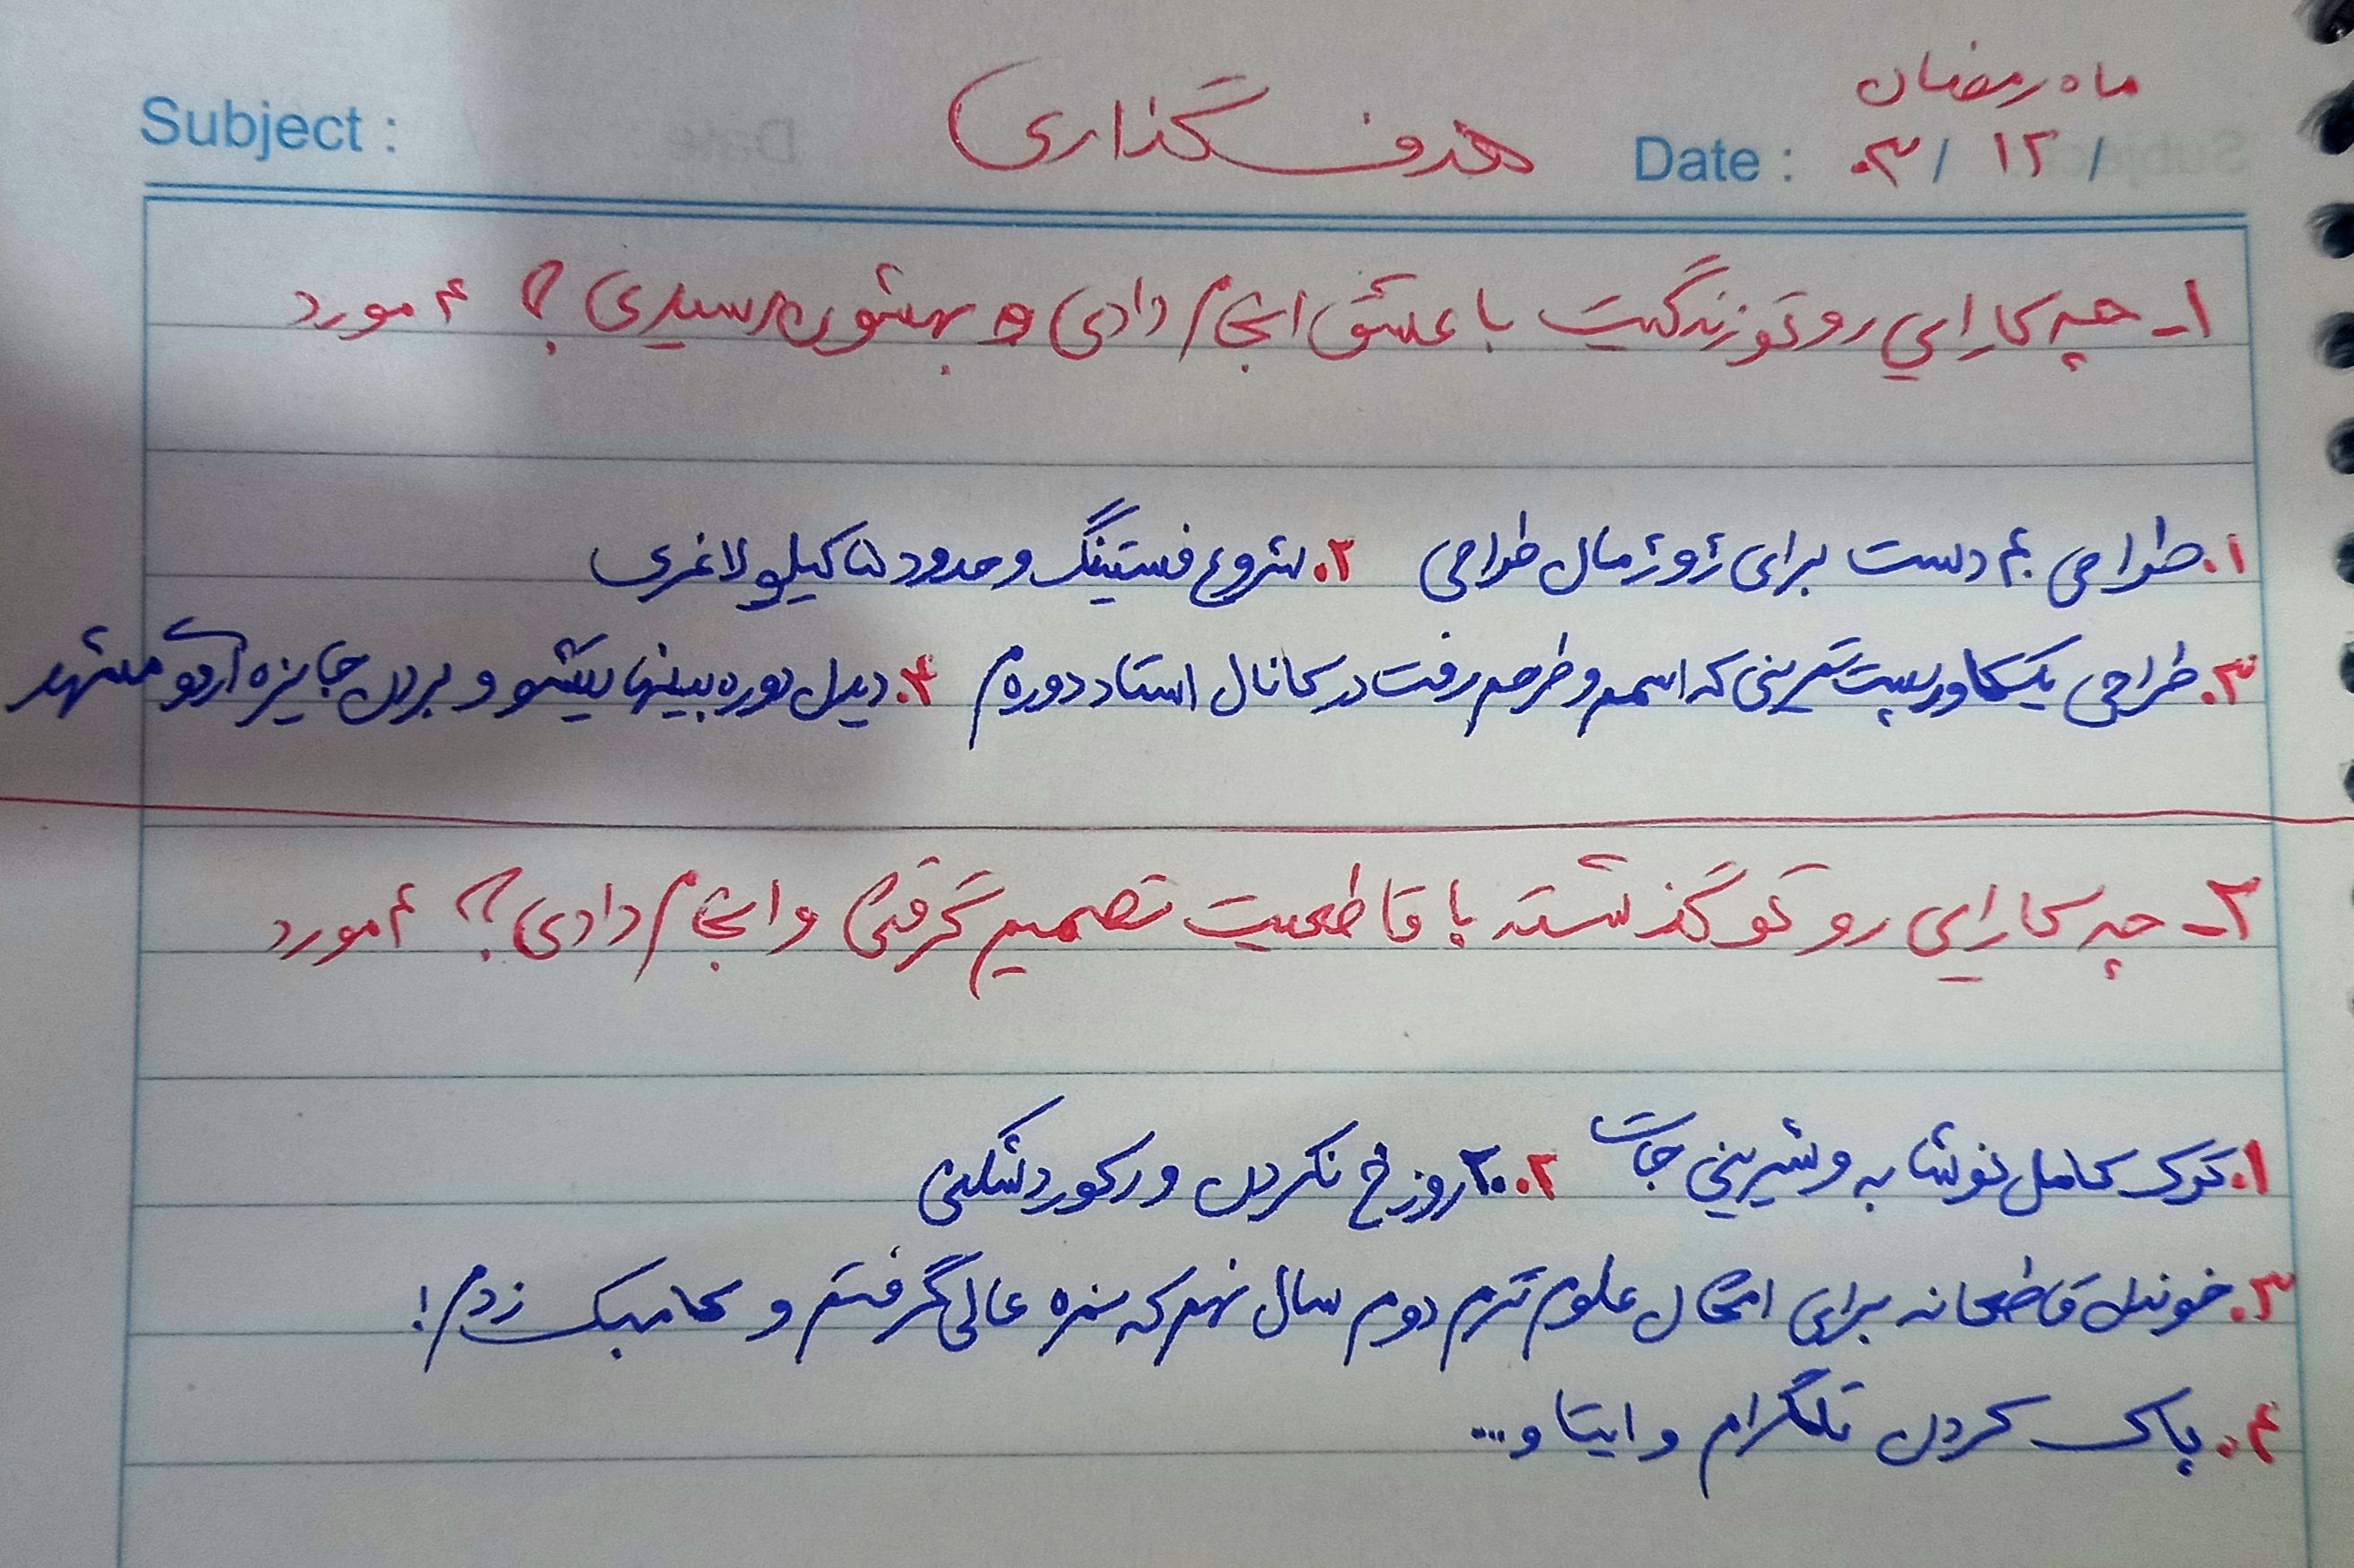 ماه رمضان
Subject :
هدف گذاری
Date : ۰۳ / ۱۲ /
۱ـ چه کارایی رو تو زندگیت با عشق انجام دادی و بهشون رسیدی؟ ۴ مورد
۱. طراحی ۴ دست برای ژوژمال طراحی ۲. شروع فستینگ و حدود ۵ کیلو لاغری
۳. طراحی یک کاور پست تمرینی که اسمم و طرحم رفت در کانال استاد دوره‌م ۴. دیدن دوره بینهایتشو و بردن جایزه اردوی مشهد
۲ـ چه کارایی رو تو گذشته با قاطعیت تصمیم گرفتی و انجام دادی؟ ۴ مورد
۱. ترک کامل نوشابه و شیرینی جات ۲. ۲۰ روز خ نکردن و رکوردشکنی
۳. خوندن قاطعانه برای امتحان علوم ترم دوم سال نهم که نمره عالی گرفتم و کامبک زدم!
۴. پاک کردن تلگرام و ایتا و...